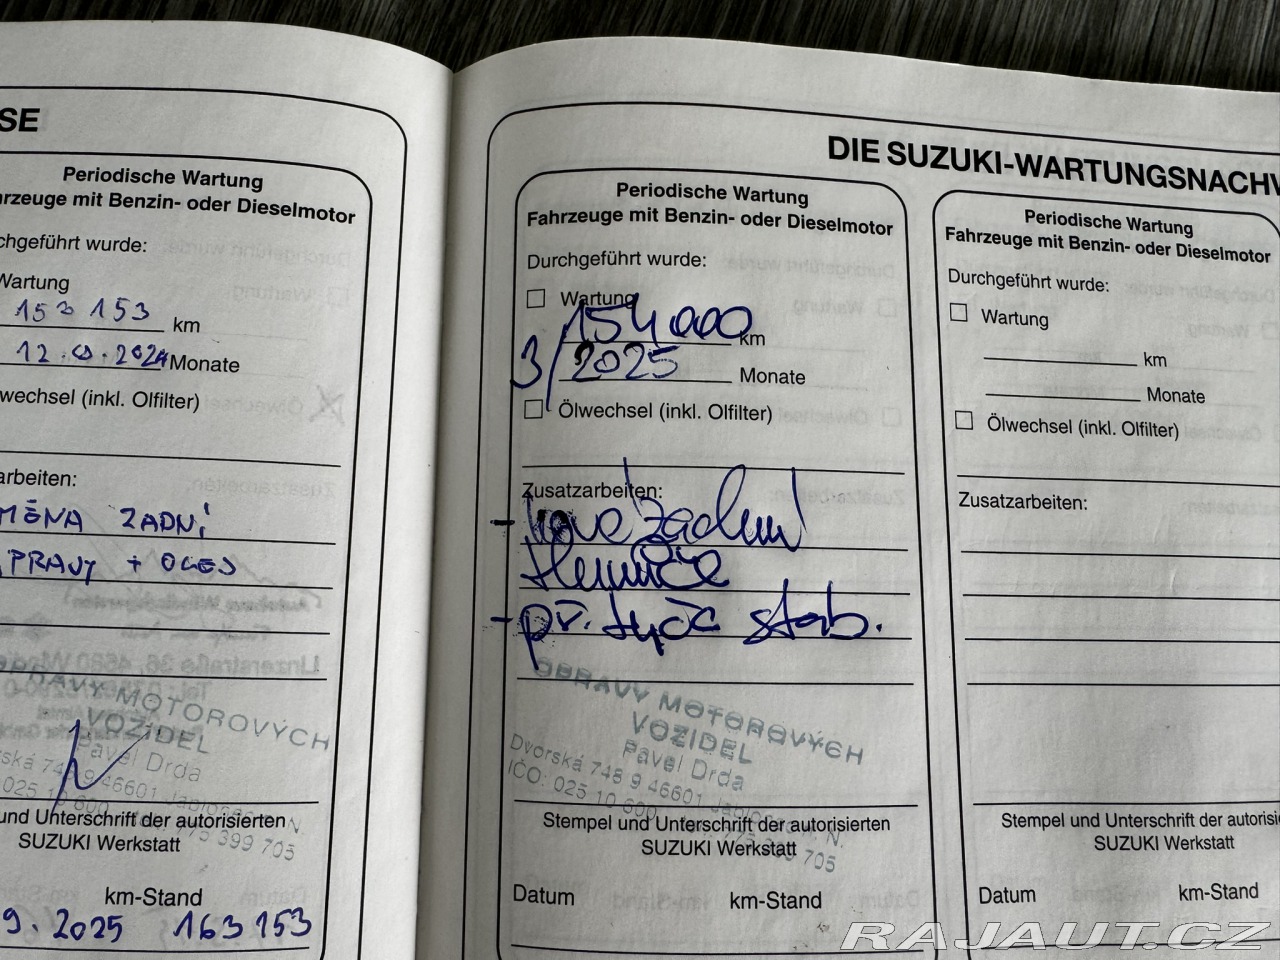 SE
Periodische Wartung
Fahrzeuge mit Benzin- oder Dieselmotor
chgeführt wurde:
Wartung
153 153 km
12.9.2024 Monate
lwechsel (inkl. Olfilter)
arbeiten:
MĚNA ZADNÍ
PRAVÝ +
AVY MOTOROVÝCH
VOZIDEL
Pavel Drda
ská 748 9 46601
025 10 600 775 399 705
und Unterschrift der autorisierten
SUZUKI Werkstatt
km-Stand
9. 2025 163 153
DIE SUZUKI-WARTUNGSNACHW
Periodische Wartung
Fahrzeuge mit Benzin- oder Dieselmotor
Durchgeführt wurde:
Wartung
154 000 km
3/2025 Monate
Ölwechsel (inkl. Olfilter)
Zusatzarbeiten:
- nové zadní
tlumiče
- př. tyčc stab.
OPRAVY MOTOROVÝCH
VOZIDEL
Pavel Drda
Dvorská 748 9 46601 Jablonec n. N.
IČO: 025 10 600 775 399 705
Stempel und Unterschrift der autorisierten
SUZUKI Werkstatt
Datum km-Stand
Periodische Wartung
Fahrzeuge mit Benzin- oder Dieselmotor
Durchgeführt wurde:
Wartung
km
Monate
Ölwechsel (inkl. Olfilter)
Zusatzarbeiten:
Stempel und Unterschrift der autorisie
SUZUKI Werkstatt
Datum km-Stand
RAJAUT.CZ